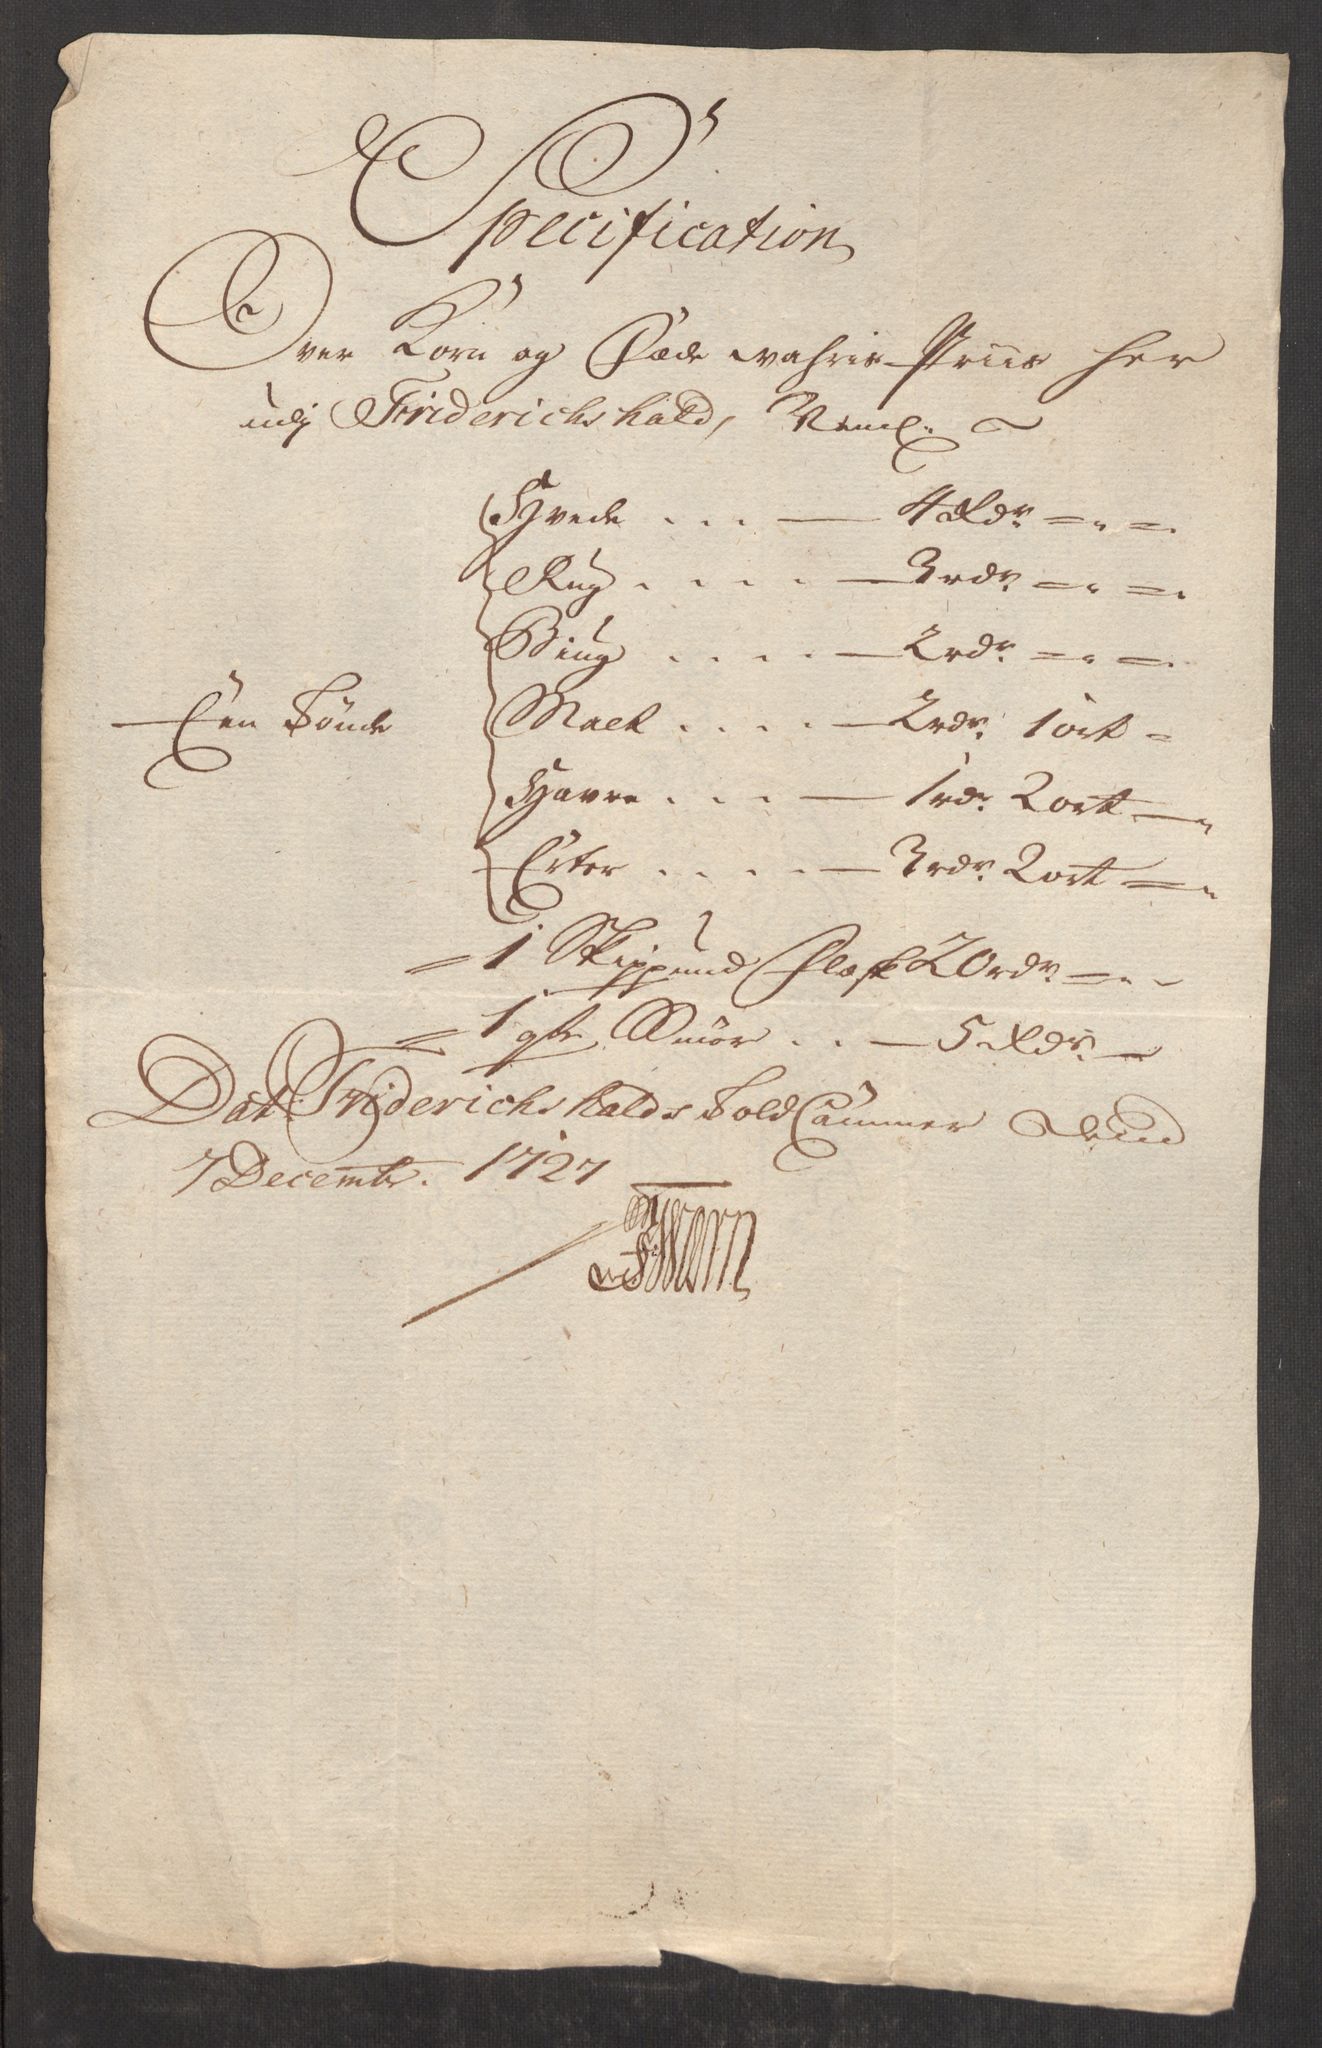 Specification
Over Korn og Føde wahris Priis her
udj Friderichshald, Neml:
Hvede . . . 4 Rdr
Rug . . . . 3 rdr
Biug . . . . 2 rdr
Een Tønde Malt . . . . 2 rdr 1 ort
Havre . . . 1 rdr 2 ort
Erter . . . . 3 rdr 2 ort
1 Skippund Flæsk 20 rdr
1 Smör . . 5 Rdr
Dat. Friderichshalds Told Cammer Dend
7 Decembr. 1727